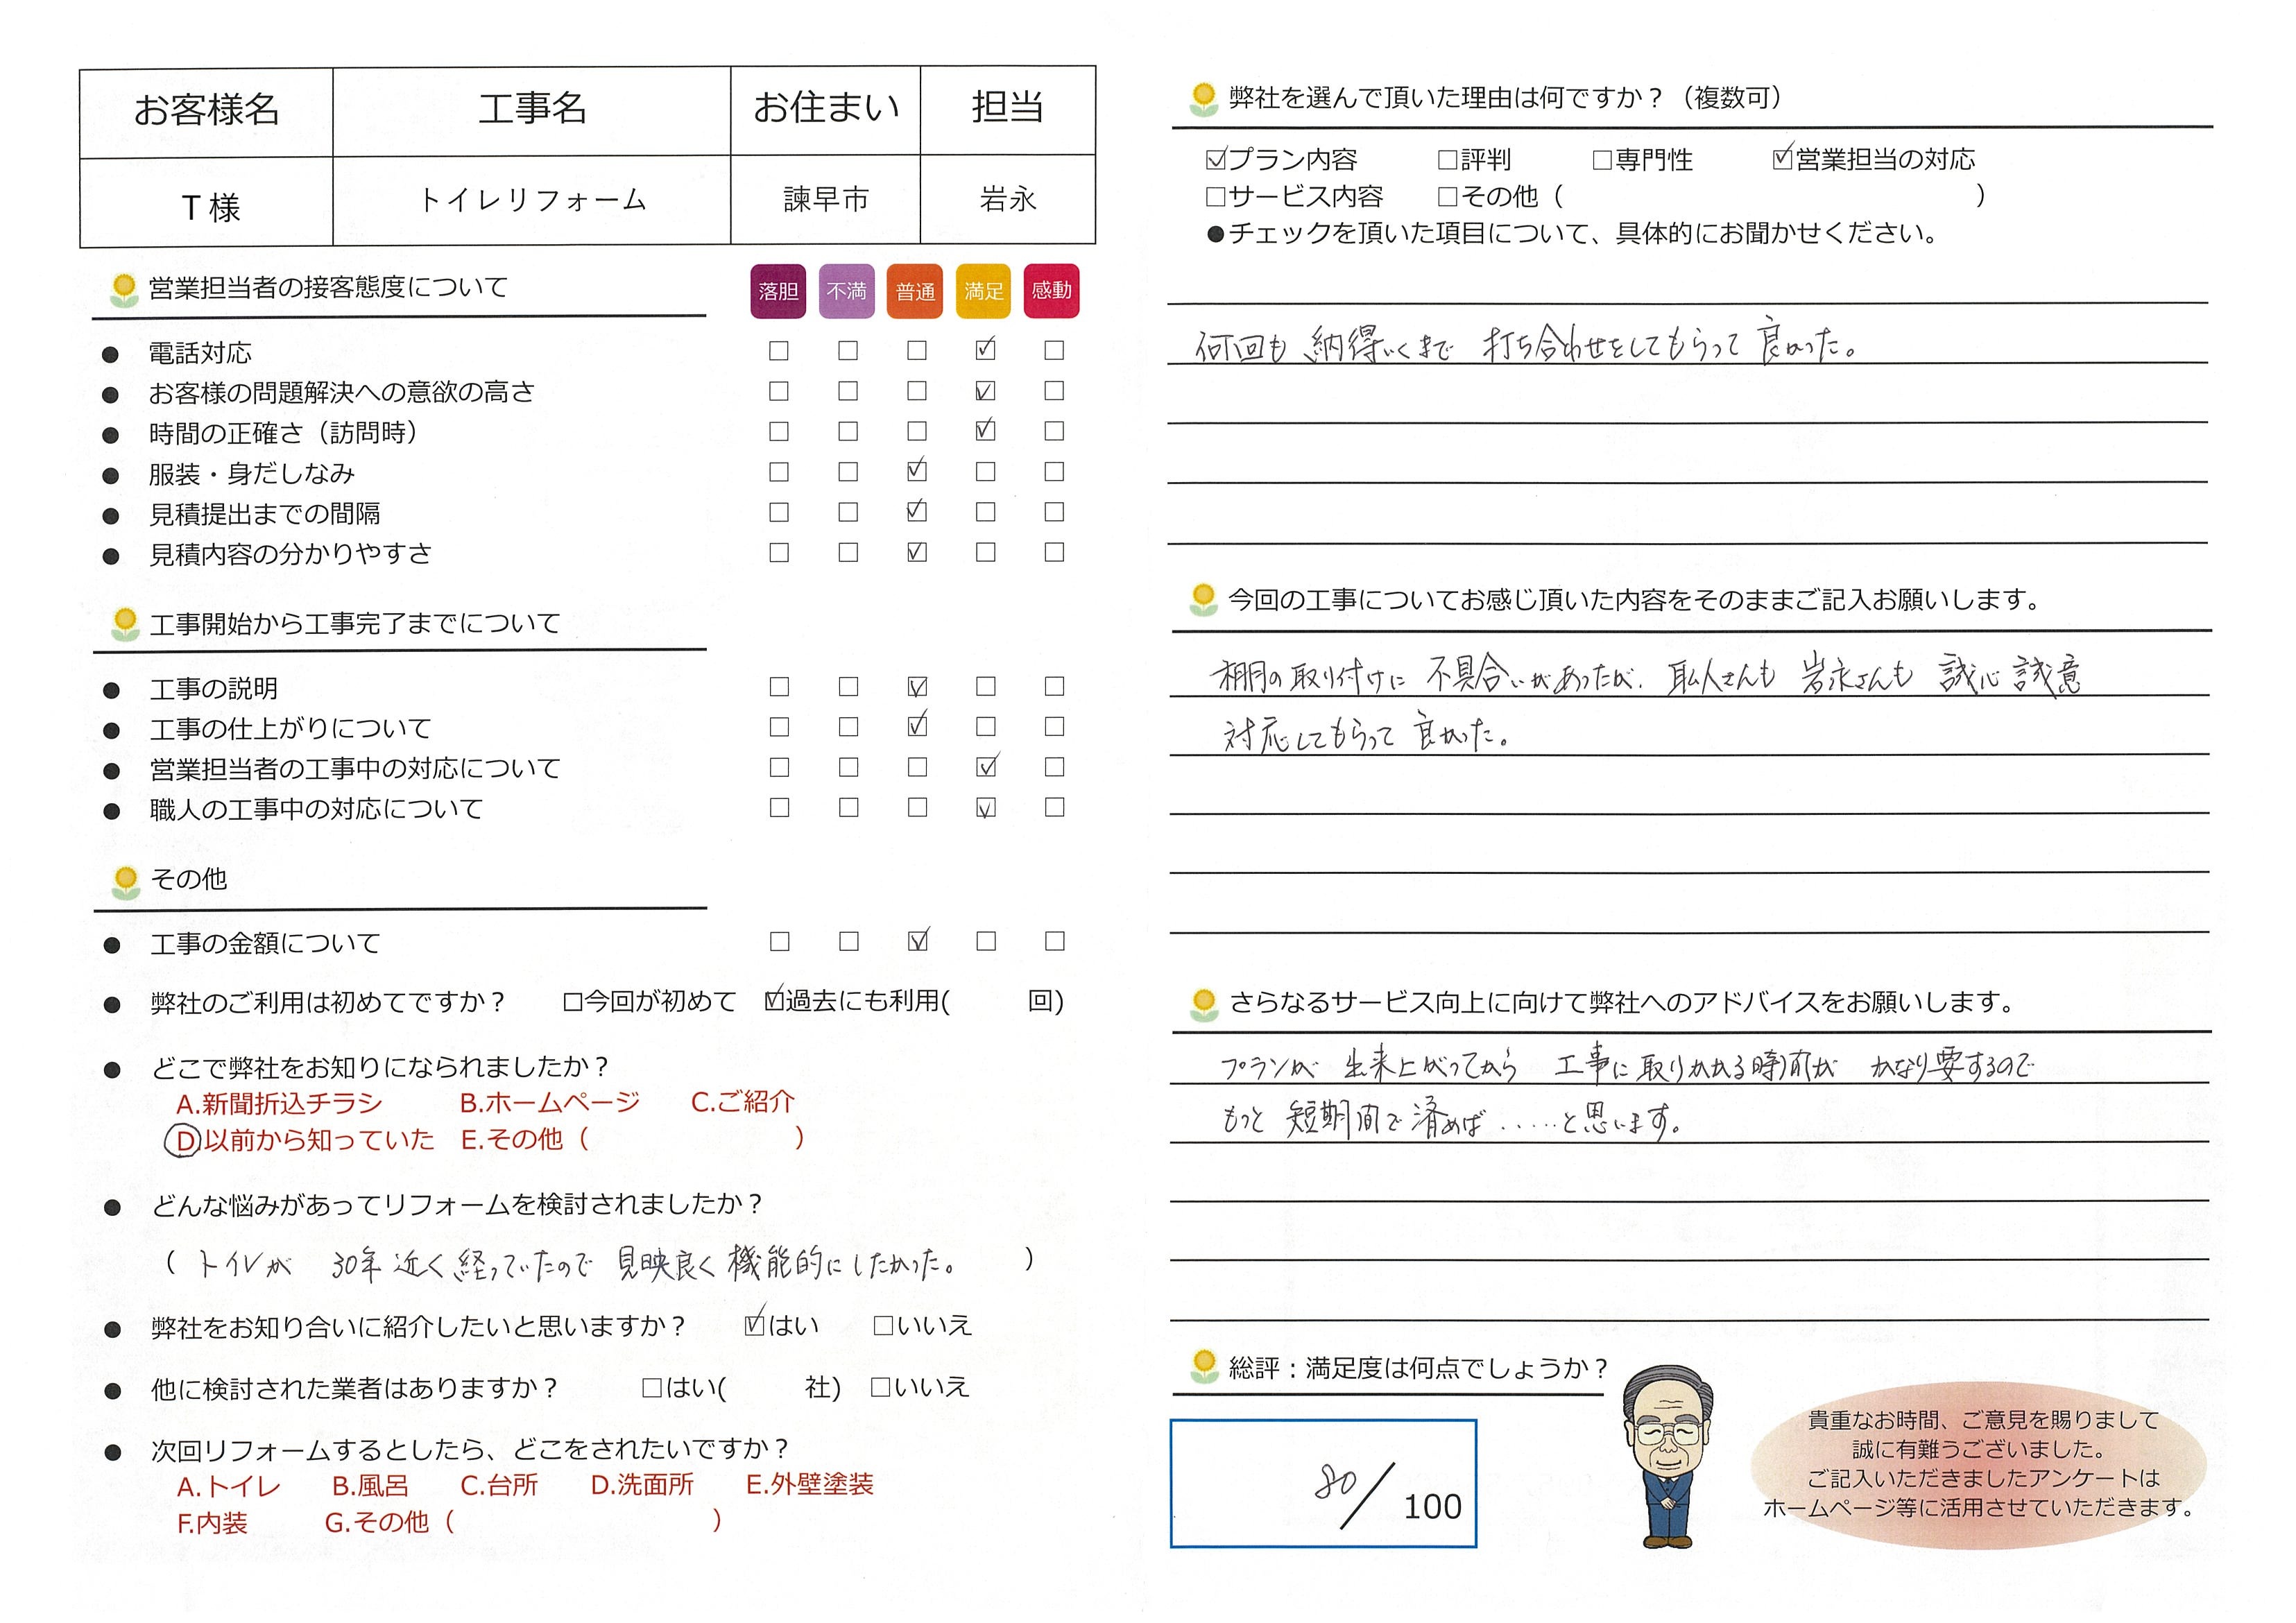 お客様名 工事名 お住まい 担当
T様 トイレリフォーム 諫早市 岩永
営業担当者の接客態度について 落胆 不満 普通 満足 感動
● 電話対応 □ □ □ ☑ □
● お客様の問題解決への意欲の高さ □ □ □ ☑ □
● 時間の正確さ（訪問時） □ □ □ ☑ □
● 服装・身だしなみ □ □ ☑ □ □
● 見積提出までの間隔 □ □ ☑ □ □
● 見積内容の分かりやすさ □ □ ☑ □ □
工事開始から工事完了までについて
● 工事の説明 □ □ ☑ □ □
● 工事の仕上がりについて □ □ ☑ □ □
● 営業担当者の工事中の対応について □ □ □ ☑ □
● 職人の工事中の対応について □ □ □ ☑ □
その他
● 工事の金額について □ □ ☑ □ □
● 弊社のご利用は初めてですか？ □今回が初めて ☑過去にも利用( 回)
● どこで弊社をお知りになられましたか？
A.新聞折込チラシ B.ホームページ C.ご紹介
D以前から知っていた E.その他（ ）
● どんな悩みがあってリフォームを検討されましたか？
（ トイレが 30年近く経っていたので 見映良く機能的にしたかった。 ）
● 弊社をお知り合いに紹介したいと思いますか？ ☑はい □いいえ
● 他に検討された業者はありますか？ □はい( 社) □いいえ
● 次回リフォームするとしたら、どこをされたいですか？
A.トイレ B.風呂 C.台所 D.洗面所 E.外壁塗装
F.内装 G.その他（ ）
弊社を選んで頂いた理由は何ですか？（複数可）
☑プラン内容 □評判 □専門性 ☑営業担当の対応
□サービス内容 □その他（ ）
●チェックを頂いた項目について、具体的にお聞かせください。
何回も 納得いくまで 打ち合わせをしてもらって 良かった。
今回の工事についてお感じ頂いた内容をそのままご記入お願いします。
棚の取り付けに 不具合いがあったが、職人さんも 岩永さんも 誠心誠意
対応してもらって 良かった。
さらなるサービス向上に向けて弊社へのアドバイスをお願いします。
プランが 出来上がってから 工事に取りかかる時間が かなり要するので
もっと 短期間で済めば ・・・・・と思います。
総評：満足度は何点でしょうか？
80/100
貴重なお時間、ご意見を賜りまして
誠に有難うございました。
ご記入いただきましたアンケートは
ホームページ等に活用させていただきます。